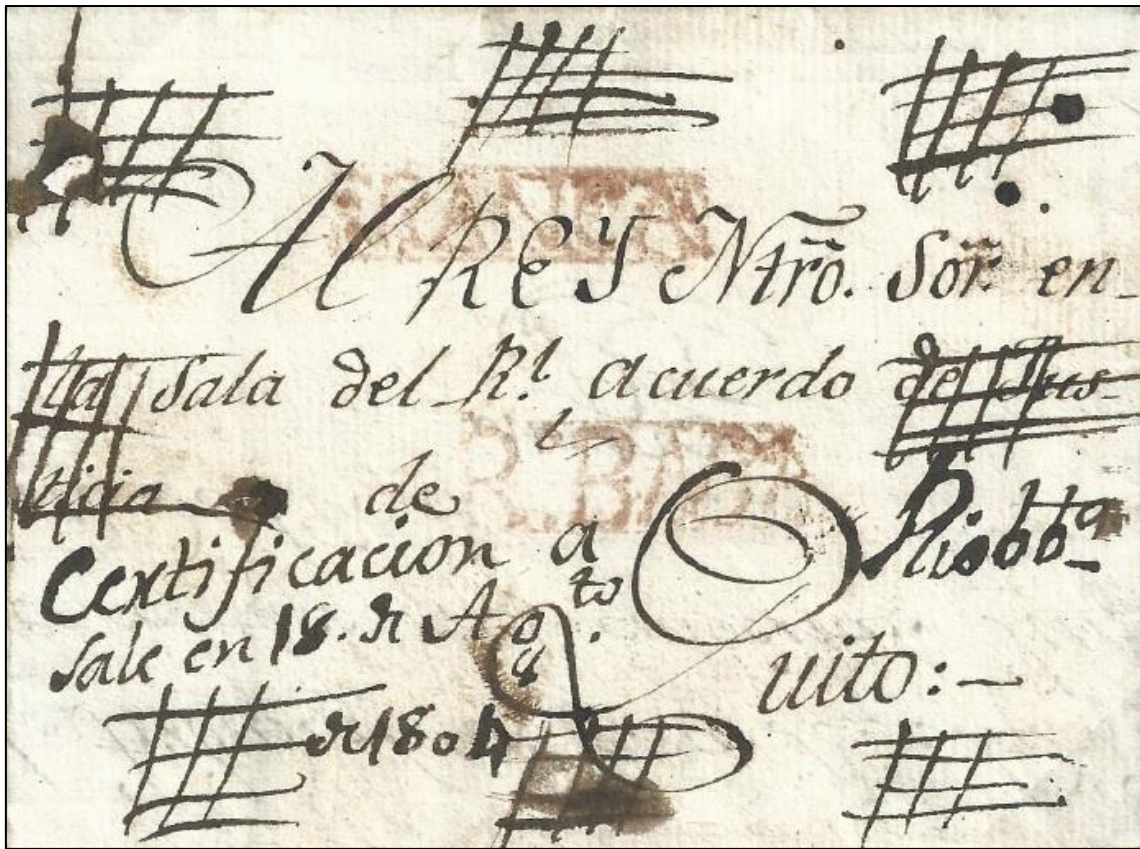 Al Rey Ntrõ. Sõr. en
la Sala del Rl. acuerdo de Jus-
ticia de
Certificacion a Riobbª
sale en 18. de Agto.
Quito:-
de 1804